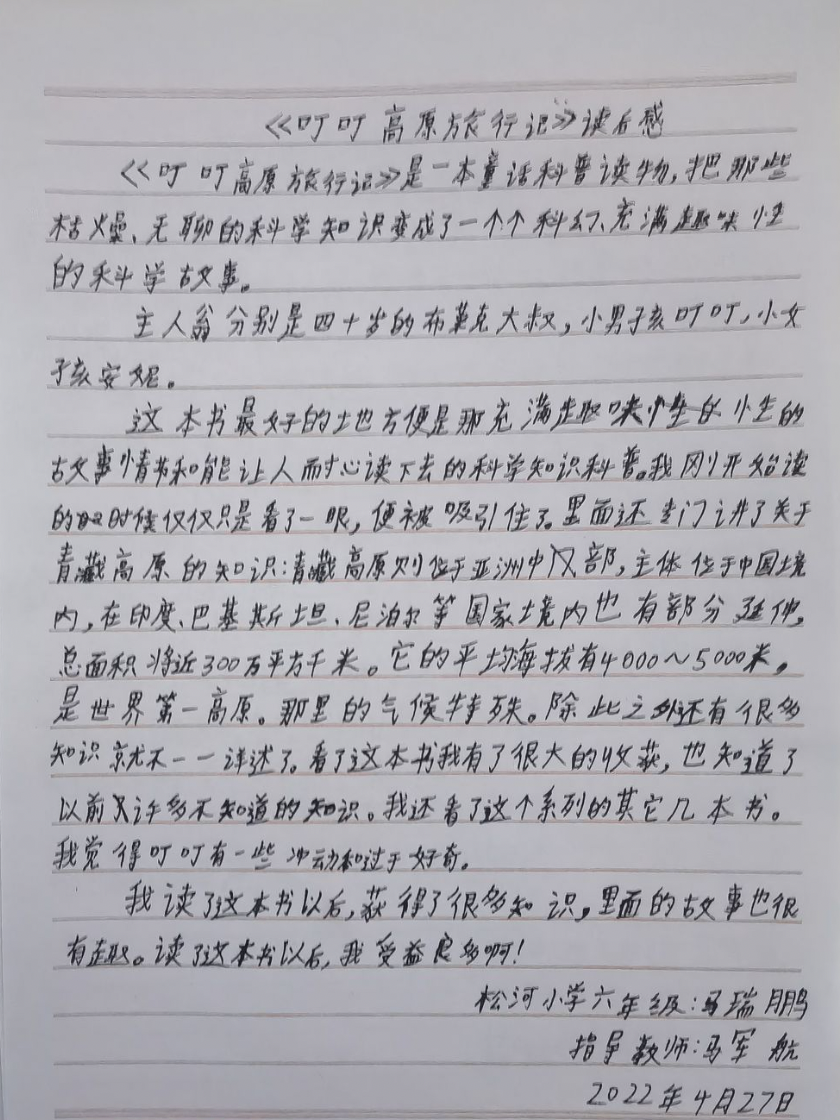 《叮叮高原旅行记》读后感
《叮叮高原旅行记》是一本童话科普读物,把那些
枯燥、无聊的科学知识变成了一个个科幻、充满趣味性
的科学故事。
主人翁分别是四十岁的布莱克大叔,小男孩叮叮,小女
孩安妮。
这本书最好的地方便是那充满趣味性的
故事情节和能让人耐心读下去的科学知识科普。我刚开始读
的时候仅仅只是看了一眼,便被吸引住了。里面还专门讲了关于
青藏高原的知识:青藏高原则位于亚洲中部,主体位于中国境
内,在印度、巴基斯坦、尼泊尔等国家境内也有部分延伸,
总面积将近300万平方千米。它的平均海拔有4000~5000米,
是世界第一高原。那里的气候特殊。除此之外还有很多
知识就不一一详述了。看了这本书我有了很大的收获,也知道了
以前许多不知道的知识。我还看了这个系列的其它几本书。
我觉得叮叮有一些冲动和过于好奇。
我读了这本书以后,获得了很多知识,里面的故事也很
有趣。读了这本书以后,我受益良多啊!
松河小学六年级:马瑞鹏
指导教师:马军航
2022年4月27日